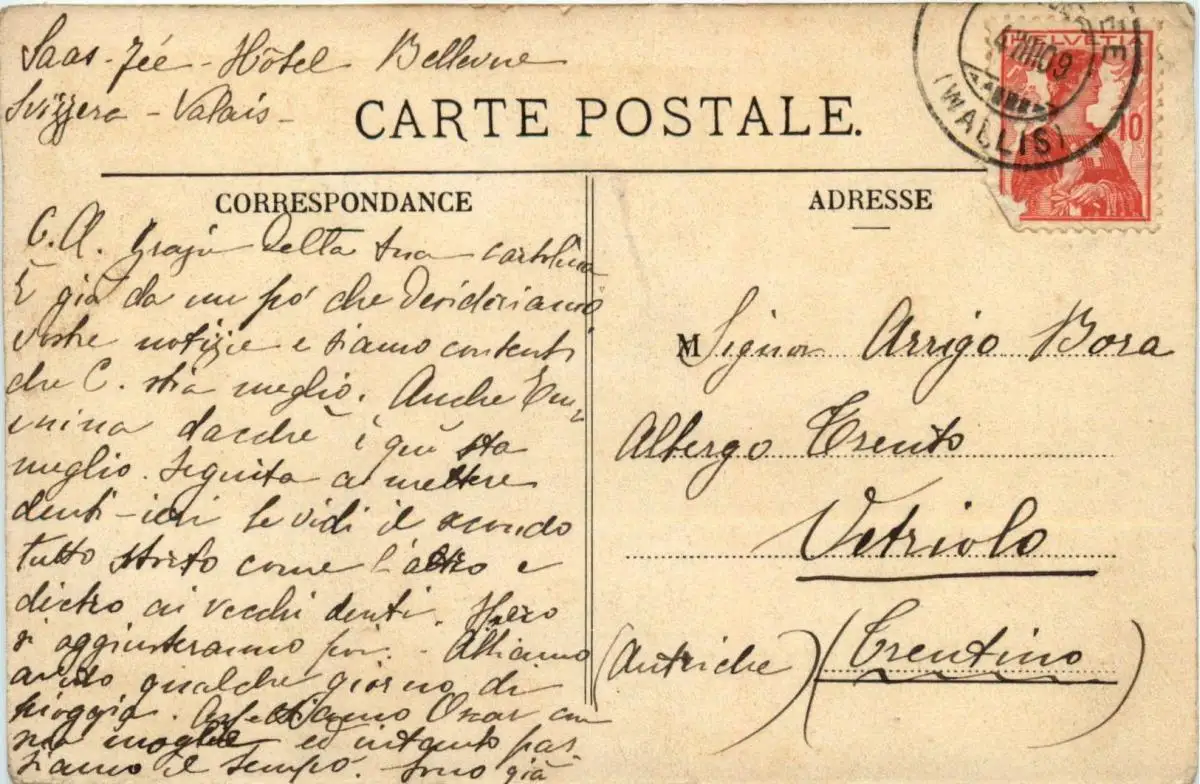 Saas-Fée - Hôtel Bellevue
Svizzera - Valais -
CARTE POSTALE.
HELVETIA
10
4 VIII 09
(WALLIS)
CORRESPONDANCE
C. A. Grazie della tua cartolina
È già da un po' che desideriamo
vostre notizie e siamo contenti
che C. stia meglio. Anche Em-
inina dacchè è qui sta
meglio. Seguita a mettere
denti - ieri le vidi il secondo
tutto storto come l'altro e
dietro ai vecchi denti. Spero
si aggiusteranno poi. - Abbiamo
avuto qualche giorno di
pioggia. Aspettiamo Oscar con
sua moglie ed intanto pas-
siamo il tempo. Sono già
ADRESSE
M Signor Arrigo Bora
Albergo Trento
Vetriolo
(Autriche) (Trentino)